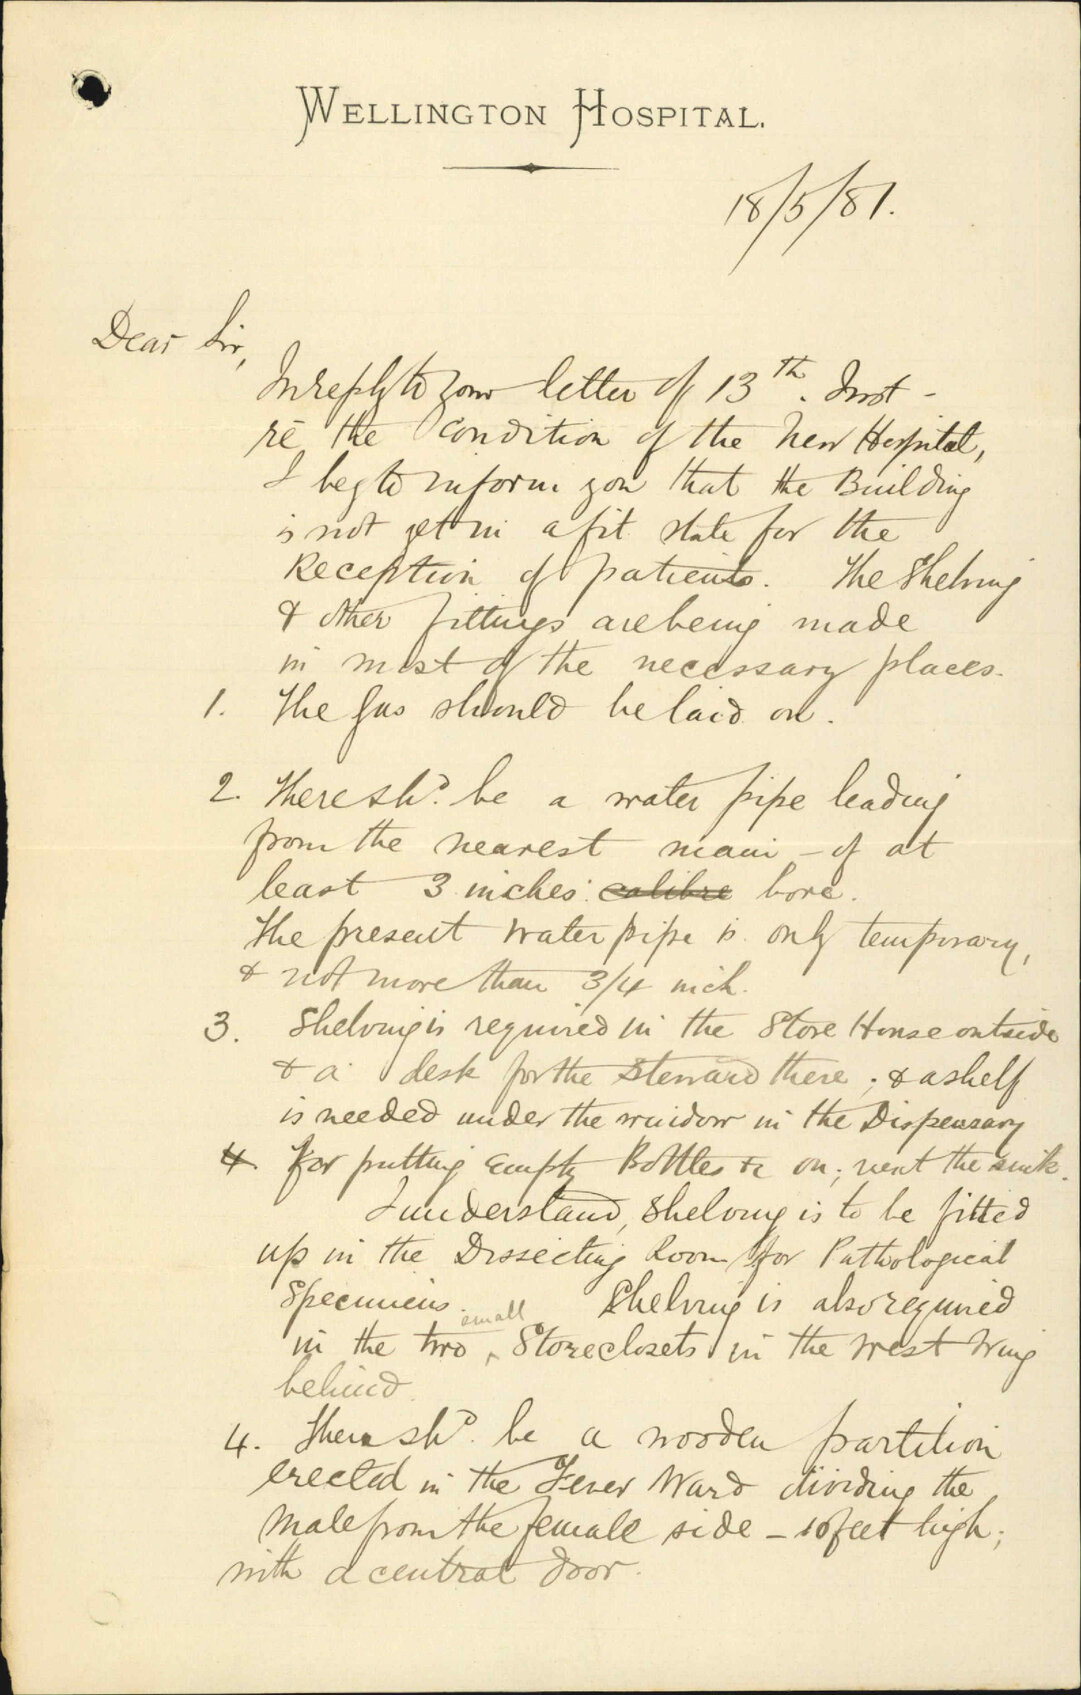 WELLINGTON HOSPITAL.
18/5/81.
Dear Sir,
In reply to your letter of 13th. Inst -
re the Condition of the New Hospital,
I beg to inform you that the Building
is not yet in a fit state for the
Reception of patients. The Shelving
& other fittings are being made
in most of the necessary places.
1. The Gas should be laid on.
2. There shd. be a water pipe leading
from the nearest main - of at
least 3 inches calibre bore.
The present water pipe is only temporary,
& not more than 3/4 inch.
3. Shelving is required in the Store House outside
& a desk for the Steward there; & a shelf
is needed under the window in the Dispensary
4. for putting Empty Bottles &c on; next the sink.
I understand, Shelving is to be fitted
up in the Dissecting Room for Pathological
Specimens. Shelving is also required
small
in the two ^ Store closets in the West Wing
behind.
4. There shd. be a wooden partition
erected in the Fever Ward dividing the
Male from the female side - 10 feet high;
with a central door.